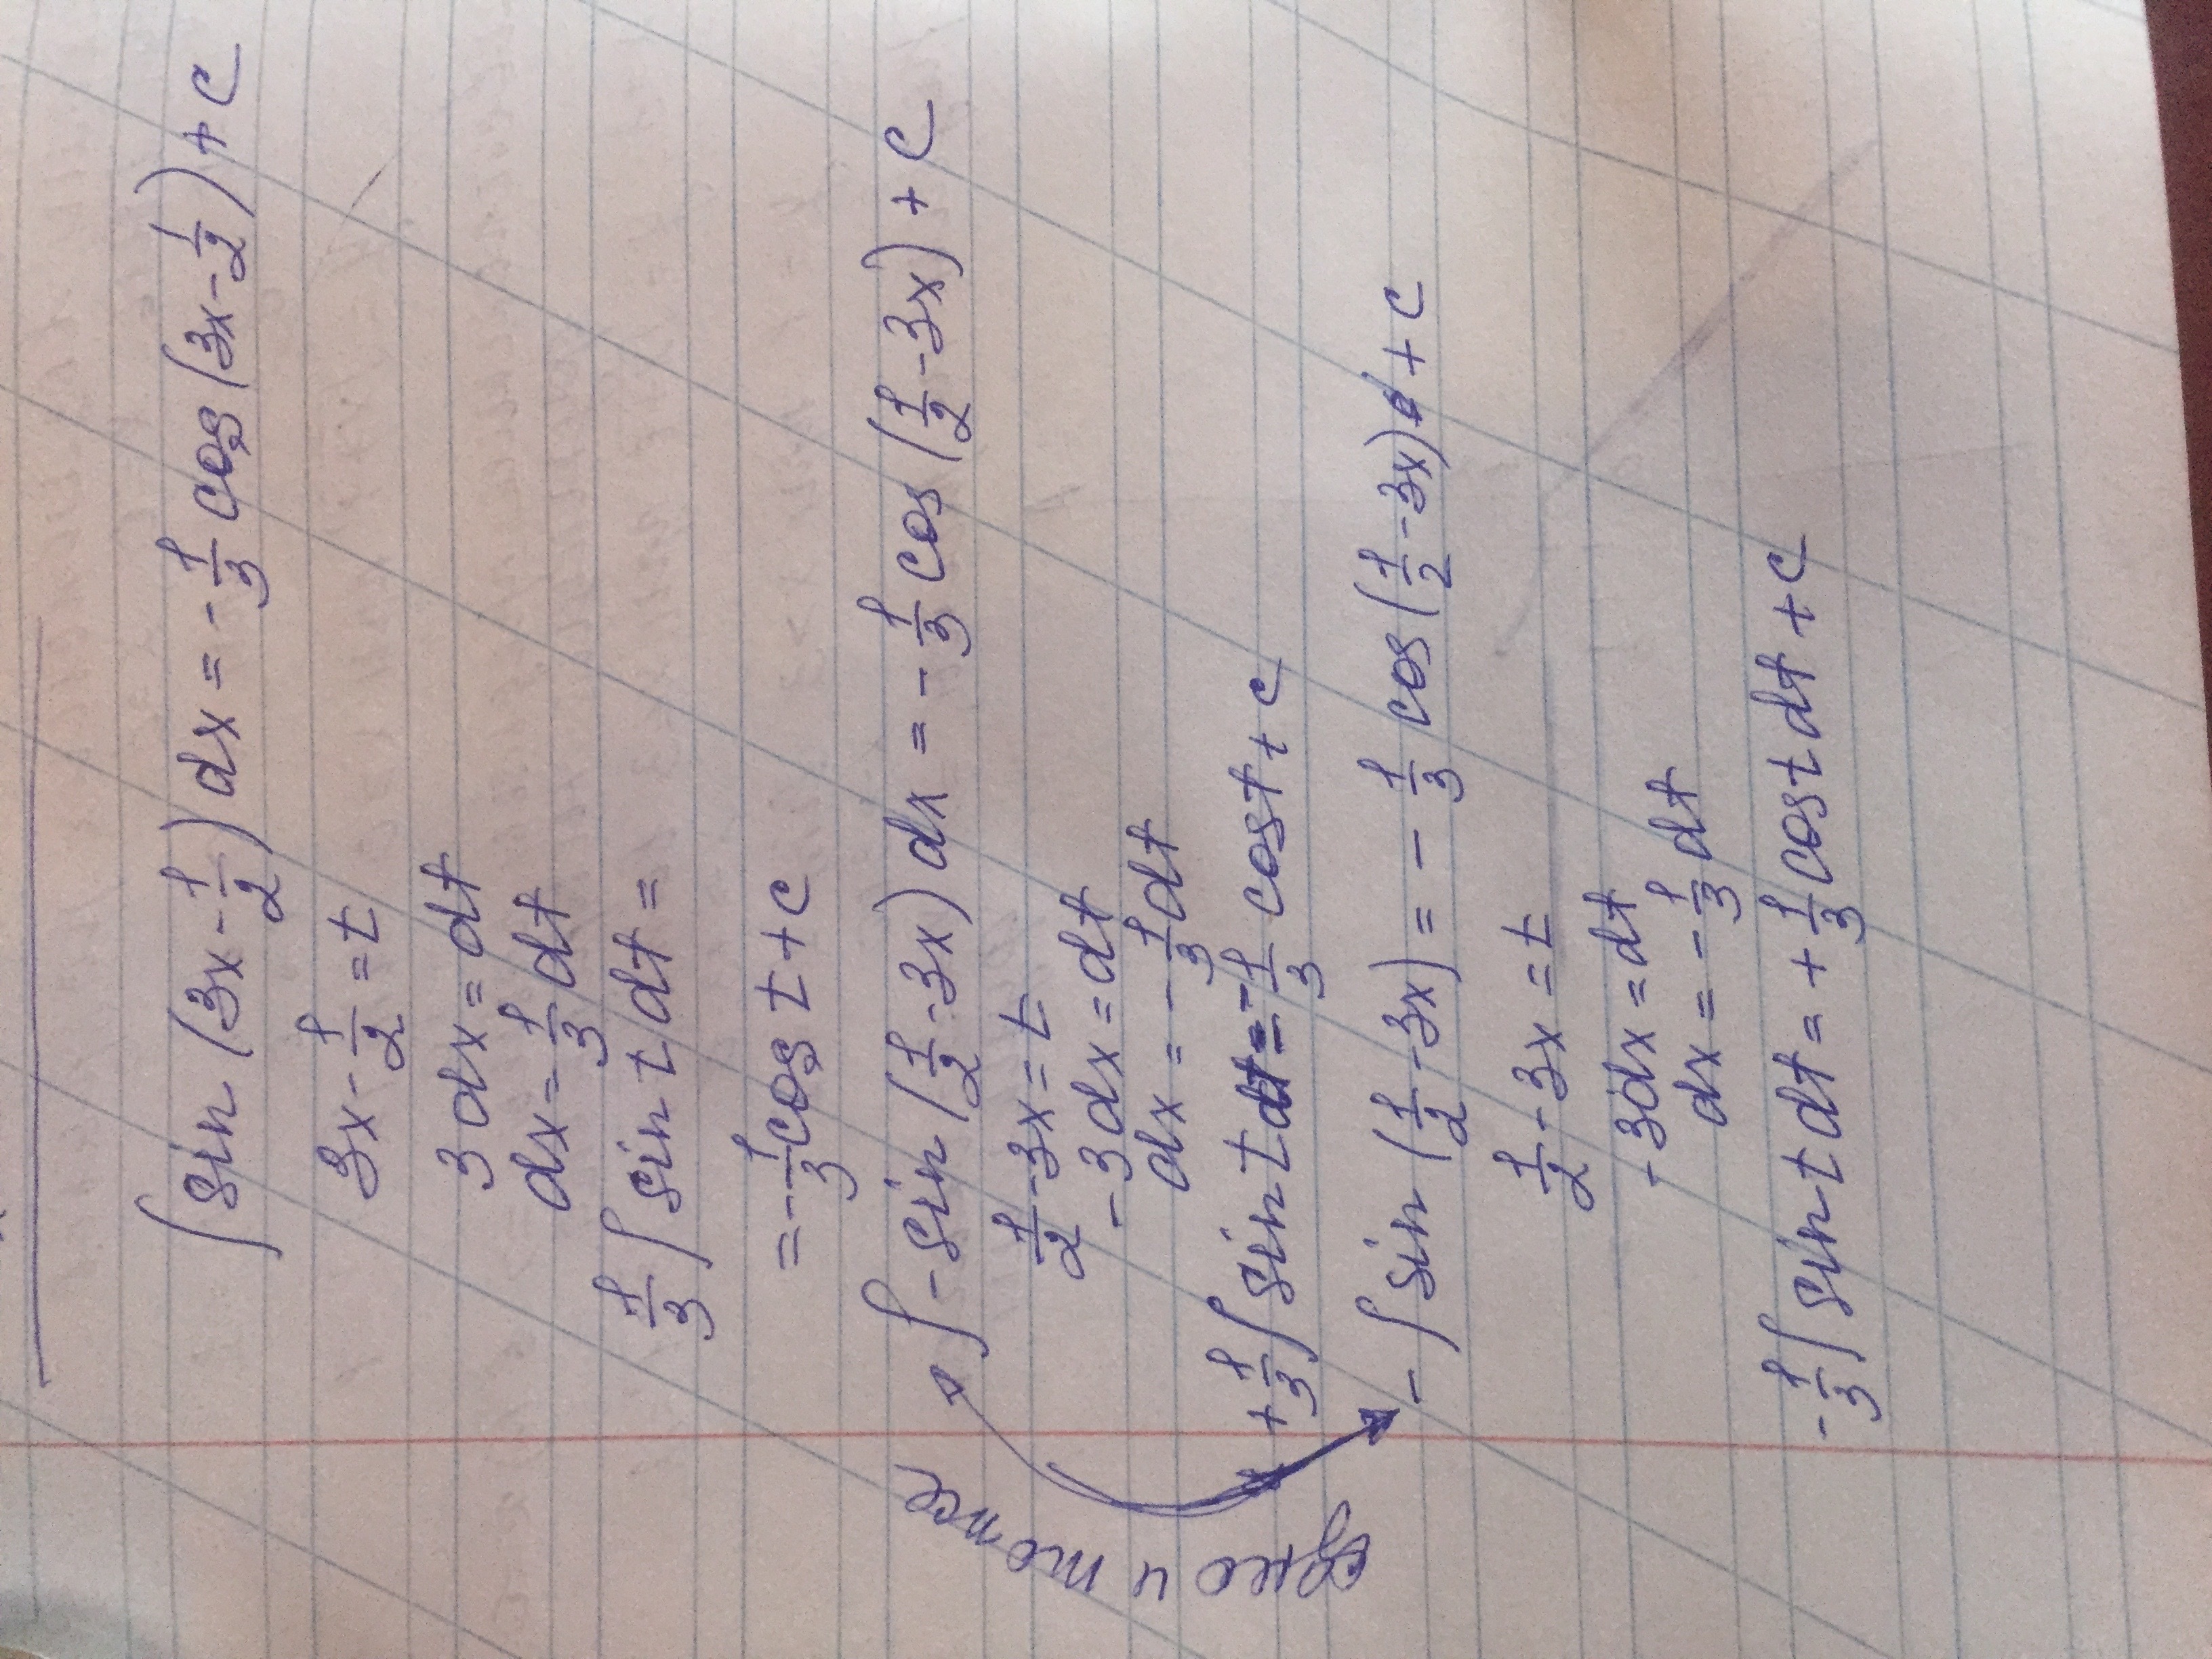 ∫ sin (3x - 1/2) dx = - 1/3 cos (3x - 1/2) + c
3x - 1/2 = t
3 dx = dt
dx = 1/3 dt
1/3 ∫ sin t dt =
= - 1/3 cos t + c
∫ - sin (1/2 - 3x) dx = - 1/3 cos (1/2 - 3x) + c
1/2 - 3x = t
- 3dx = dt
dx = - 1/3 dt
+ 1/3 ∫ sin t dt = - 1/3 cos t + c
одно и то же
- ∫ sin (1/2 - 3x) = - 1/3 cos (1/2 - 3x) + c
1/2 - 3x = t
- 3dx = dt
dx = - 1/3 dt
- 1/3 ∫ sin t dt = + 1/3 cos t dt + c